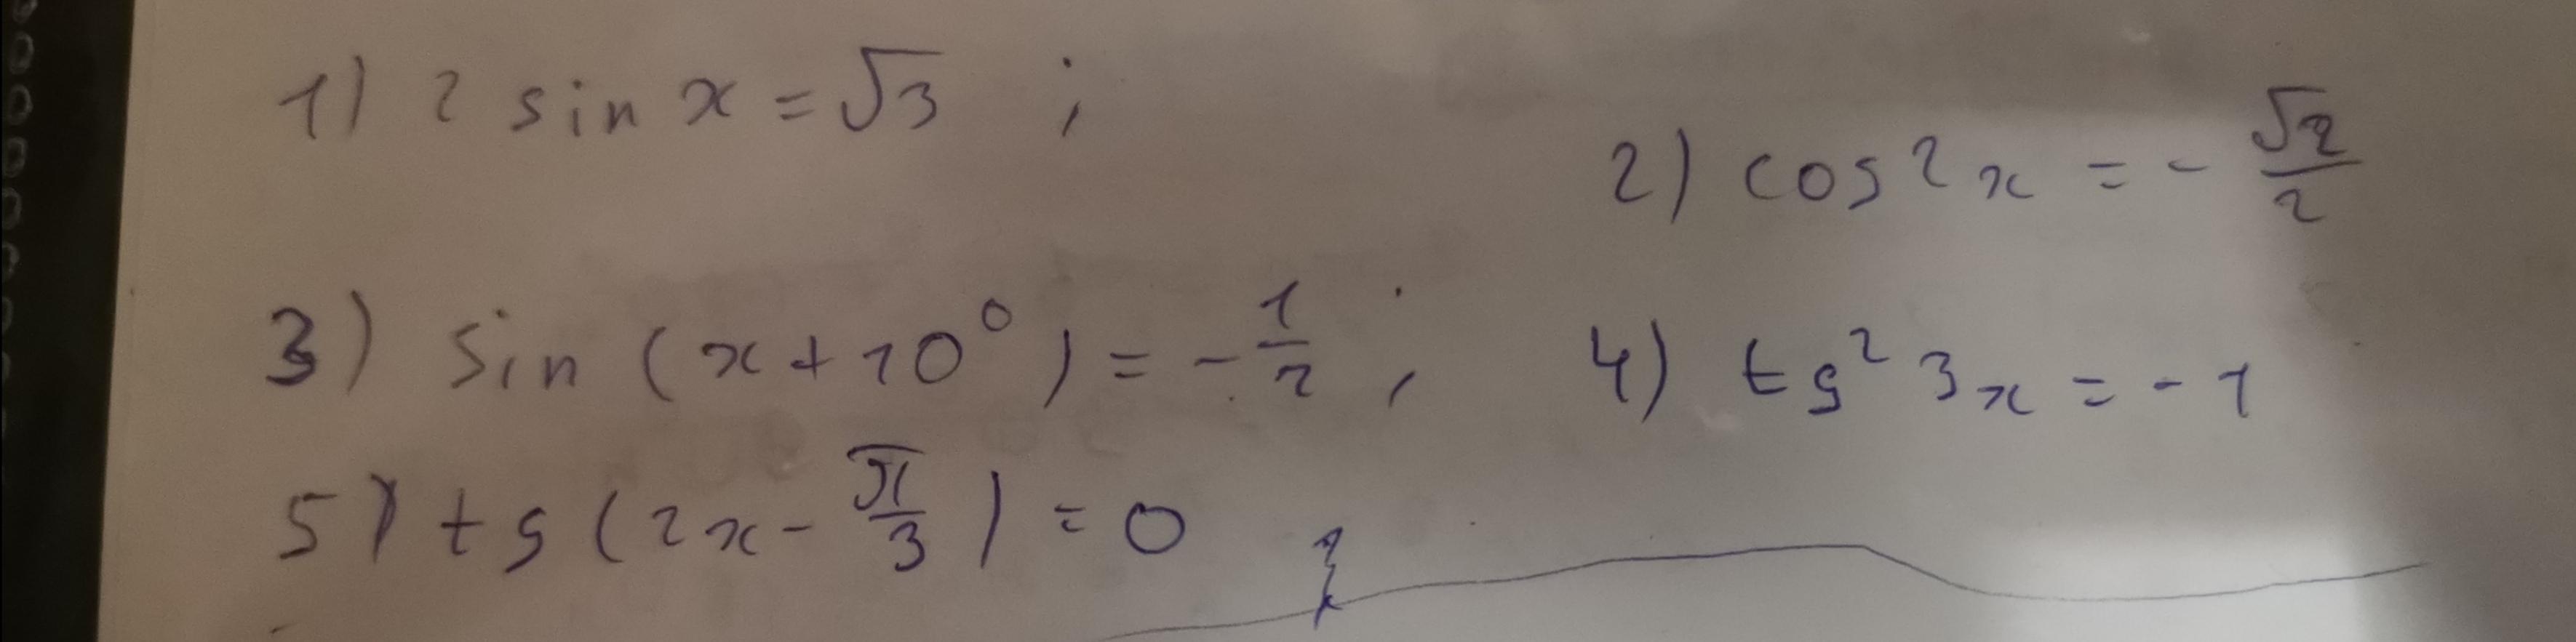 1) 2 sin x = √3 ;
2) cos 2x = - √2/2
3) sin (x + 10°) = - 1/2 ;
4) tg² 3x = - 1
5) tg (2x - π/3) = 0